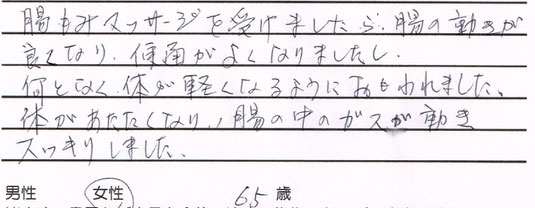 腸もみマッサージを受けましたら、腸の動きが
良くなり、便通がよくなりましたし、
何となく、体が軽くなるようにおもわれました。
体があたたくなり、腸の中のガスが動き
スッキリしました。
男性 女性 65 歳